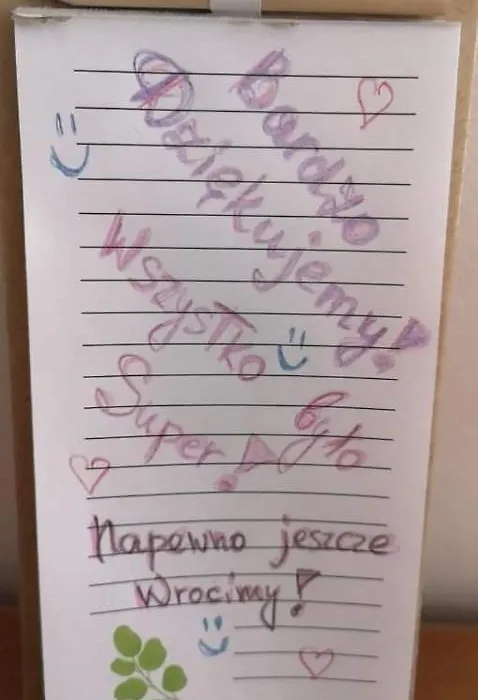 Bardzo
Dziękujemy!
Wszystko
było
Super!
Napewno jeszcze
Wrocimy!